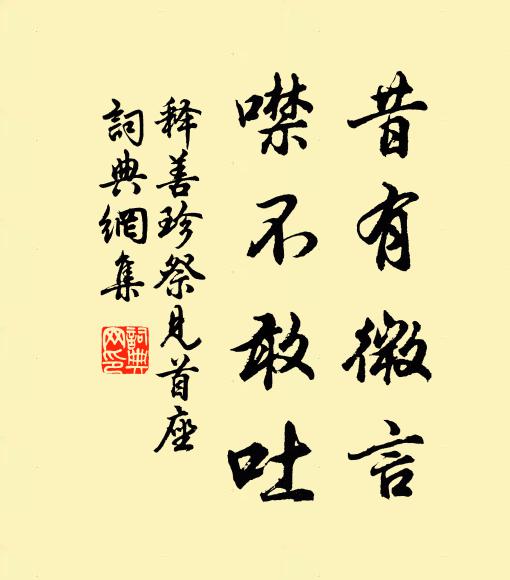 昔有微言
噤不敢吐
释善珍祭見首座
詞典網集
詞典
网印